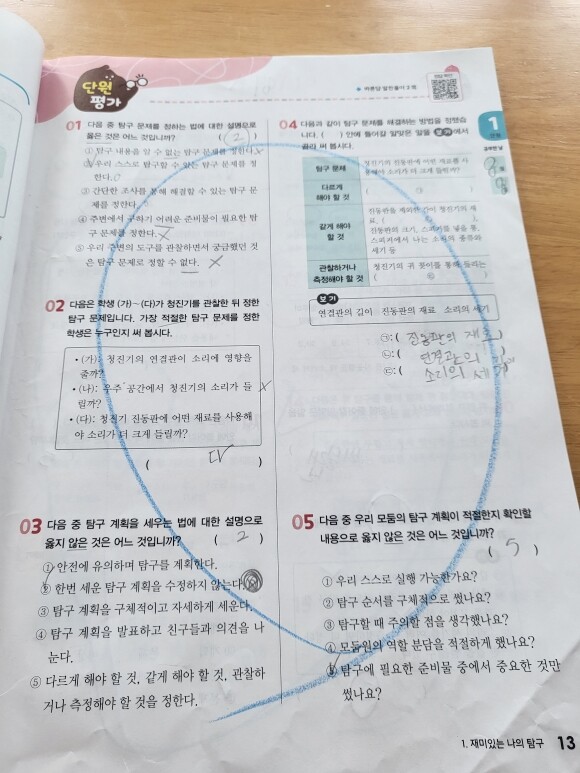 단원
평가
★ 바른답·알찬풀이 2쪽
정답 확인
01 다음 중 탐구 문제를 정하는 법에 대한 설명으로
옳은 것은 어느 것입니까? ( 2 )
① 탐구 내용을 알 수 없는 탐구 문제를 정한다. ×
② 우리 스스로 탐구할 수 있는 탐구 문제를 정
한다.
③ 간단한 조사를 통해 해결할 수 있는 탐구 문
제를 정한다.
④ 주변에서 구하기 어려운 준비물이 필요한 탐
구 문제를 정한다. ×
⑤ 우리 주변의 도구를 관찰하면서 궁금했던 것
은 탐구 문제로 정할 수 없다. ×
02 다음은 학생 (가)~(다)가 청진기를 관찰한 뒤 정한
탐구 문제입니다. 가장 적절한 탐구 문제를 정한
학생은 누구인지 써 봅시다.
• (가): 청진기의 연결관이 소리에 영향을
줄까?
• (나): 우주 공간에서 청진기의 소리가 들 ×
릴까?
• (다): 청진기 진동판에 어떤 재료를 사용해
야 소리가 더 크게 들릴까?
( 다 )
03 다음 중 탐구 계획을 세우는 법에 대한 설명으로
옳지 않은 것은 어느 것입니까? ( 2 )
① 안전에 유의하며 탐구를 계획한다.
② 한번 세운 탐구 계획을 수정하지 않는다.
③ 탐구 계획을 구체적이고 자세하게 세운다.
④ 탐구 계획을 발표하고 친구들과 의견을 나
눈다.
⑤ 다르게 해야 할 것, 같게 해야 할 것, 관찰하
거나 측정해야 할 것을 정한다.
04 다음과 같이 탐구 문제를 해결하는 방법을 정했습
니다. ( ) 안에 들어갈 알맞은 말을 보기에서
골라 써 봅시다.
탐구 문제
청진기의 진동판에 어떤 재료를 사
용해야 소리가 더 크게 들릴까?
다르게
해야 할 것
( ㉠ )
같게 해야
할 것
진동판을 제외한 간이 청진기의 재
료, ( ㉡ ),
진동판의 크기, 스피커를 넣을 통,
스피커에서 나는 소리의 종류와
세기 등
관찰하거나
측정해야 할 것
청진기의 귀 꽂이를 통해 들리는
( ㉢ )
보기
연결관의 길이 진동판의 재료 소리의 세기
㉠: ( 진동판의 재료 )
㉡: ( 연결관의 )
㉢: ( 소리의 세기 )
05 다음 중 우리 모둠의 탐구 계획이 적절한지 확인할
내용으로 옳지 않은 것은 어느 것입니까?
( 5 )
① 우리 스스로 실행 가능한가요?
② 탐구 순서를 구체적으로 썼나요?
③ 탐구할 때 주의할 점을 생각했나요?
④ 모둠원의 역할 분담을 적절하게 했나요?
⑤ 탐구에 필요한 준비물 중에서 중요한 것만
썼나요?
1
단원
1. 재미있는 나의 탐구 13